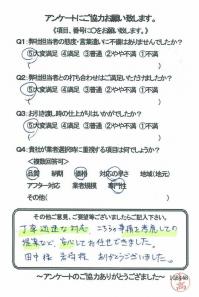 アンケートにご協力お願い致します。
《項目、番号に○をお願い致します。》
Q1:弊社担当者の態度・言葉遣いに不備はありませんでしたか?
⑤大変満足 ④満足 ③普通 ②やや不満 ①不満
Q2:弊社担当者との打ち合わせはご満足いただけましたか?
⑤大変満足 ④満足 ③普通 ②やや不満 ①不満
Q3:お引き渡し時の仕上がりはいかがでしたか?
⑤大変満足 ④満足 ③普通 ②やや不満 ①不満
Q4:貴社が業者選択時に重視する項目は何でしょうか?
<複数回答可>
品質 納期 価格 対応の早さ 地域(地元)
アフター対応 業者規模 専門性
その他( )
その他ご意見、ご要望等ございましたらご記入下さい。
丁寧迅速な対応、こちらの事情を考慮しての
提案など、安心してお任せできました。
田中様
ありがとうございました。
〜アンケートのご協力ありがとうございました〜